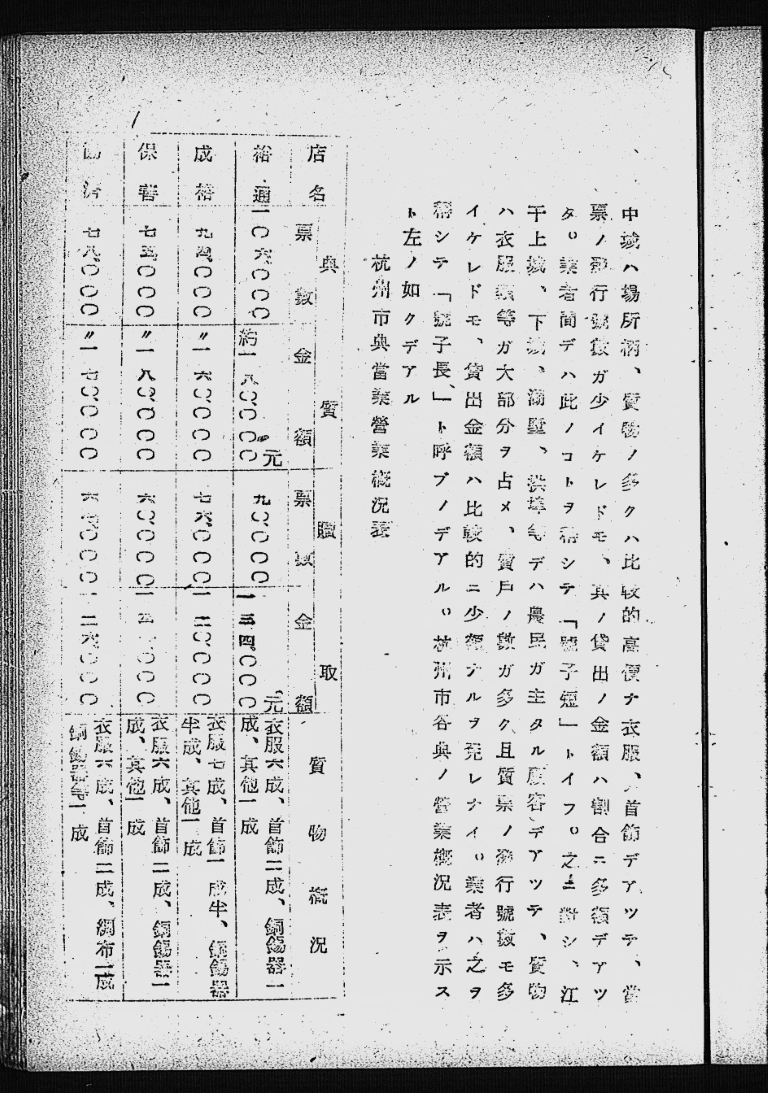 中城ハ場所柄、質物ノ多クハ比較的高價ナ衣服、首飾デアツテ、當
票ノ發行號數ガ少イケレドモ、其ノ貸出ノ金額ハ割合ニ多額デアツ
タ。業者間デハ此ノコトヲ稱シテ「號子短」トイフ。之ニ對シ、江
干上城、下城、湖墅、拱埠等デハ農民ガ主タル顧客デアツテ、質物
ハ衣服類等ガ大部分ヲ占メ、質戶ノ數ガ多ク、且質票ノ發行號數モ多
イケレドモ、貸出金額ハ比較的ニ少額ナルヲ免レナイ。業者ハ之ヲ
稱シテ「號子長」ト呼ブノデアル。杭州市各典ノ營業槪況表ヲ示ス
ト左ノ如クデアル
杭州市典當業營業槪況表
店名 典質 贖取 質物槪況
票數 金額 票數 金額
裕通 一〇六、〇〇〇 約一八〇、〇〇〇元 九〇、〇〇〇 一三四、〇〇〇元 衣服六成、首飾二成、銅錫器一
成、其他一成
成裕 九四、〇〇〇 〃一六〇、〇〇〇 七六、〇〇〇 一二〇、〇〇〇 衣服七成、首飾一成半、銅錫器
半成、其他一成
保善 七五、〇〇〇 〃一八〇、〇〇〇 六〇、〇〇〇 衣服六成、首飾二成、銅錫器一
成、其他一成
濟 七八、〇〇〇 〃一七〇、〇〇〇 〇〇〇 一二六、〇〇〇 衣服六成、首飾二成、綢布一成
銅錫器等一成